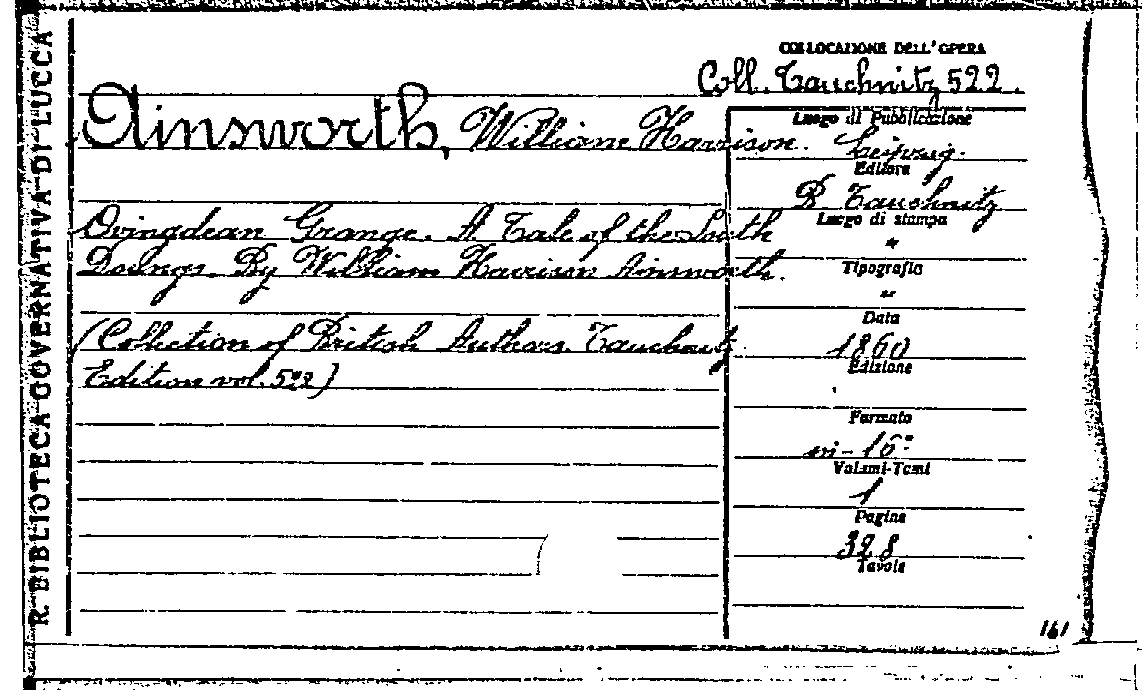 R. BIBLIOTECA GOVERNATIVA DI LUCCA
COLLOCAZIONE DELL'OPERA
Coll. Tauchnitz 522.
Ainsworth, William Harrison.
Ovingdean Grange. A Tale of the South
Downs. By William Harrison Ainsworth.
(Collection of British Authors. Tauchnitz
Edition vol. 522)
Luogo di Pubblicazione
Leipzig.
Editore
B. Tauchnitz
Luogo di stampa
Tipografia
Data
1860
Edizione
Formato
in-16°
Volumi-Tomi
1
Pagine
328
Tavole
161